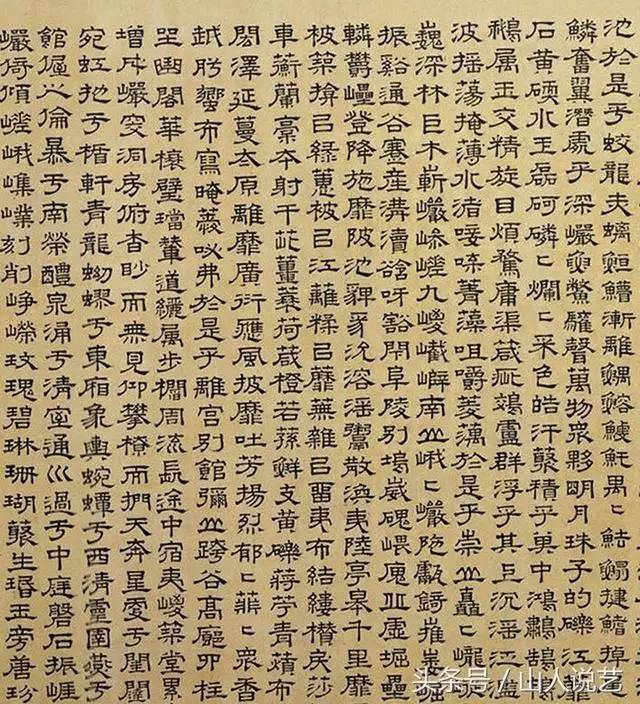 池於是乎蛟龍夫螭䱭鰽漸離鰅鰫鰬魠禺〻鮯鰨揵鰭掉
鱗奮翼潛處乎深巖魚鱉讙聲萬物眾夥明月珠子的礫江靡
石黃碝水玉磊砢磷〻爛〻采色皓汗藂積乎其中鴻鷫鵠
鵝属玉交精旋目煩鶩庸渠葴疵鵁盧群浮乎其上沉淫
波揺蕩掩薄水渚唼喋菁藻咀嚼菱藕於是乎崇山矗〻巃嵷
巍深林巨木嶄巖嵾嵳九嵏嶻嶭南山峩〻巖陁甗錡嶊崣崛
振谿通谷蹇產溝瀆谽呀豁閜阜陵別塢崴磈嵔廆丘虛堀礨
轔鬱壘登降施靡陂池貏豸沇溶淫鬻散渙夷陸亭皋千里靡
被築揜以綠蕙被以江蘺糅以蘼蕪雜以留夷布結縷欑戾莎
車蘅蘭藁本射干茈薑蘘荷葴橙若蓀鮮支黃礫蔣芧青薠布
閎澤延蔓太原離靡廣衍應風披靡吐芳揚烈郁〻菲〻眾香
越肸蠁布寫晻薆咇茀於是乎離宮別館彌山跨谷高廊四柱
坐曲閣華榱璧璫輦道纚属步櫩周流長途中宿夷嵏築堂累
增成巖突洞房俯杳眇而無見仰攀橑而捫天奔星更于閨闥
宛虹扡于楯軒青龍蚴蟉于東廂象輿蜿蟬于西清靈圄燕于
館偓之倫暴于南榮醴泉涌于清室通川過于中庭磐石振崖
巖倚傾嵳峨嶫刻削崢嶸玫瑰碧琳珊瑚藂生瑉玉旁玢
头条号／山人说艺